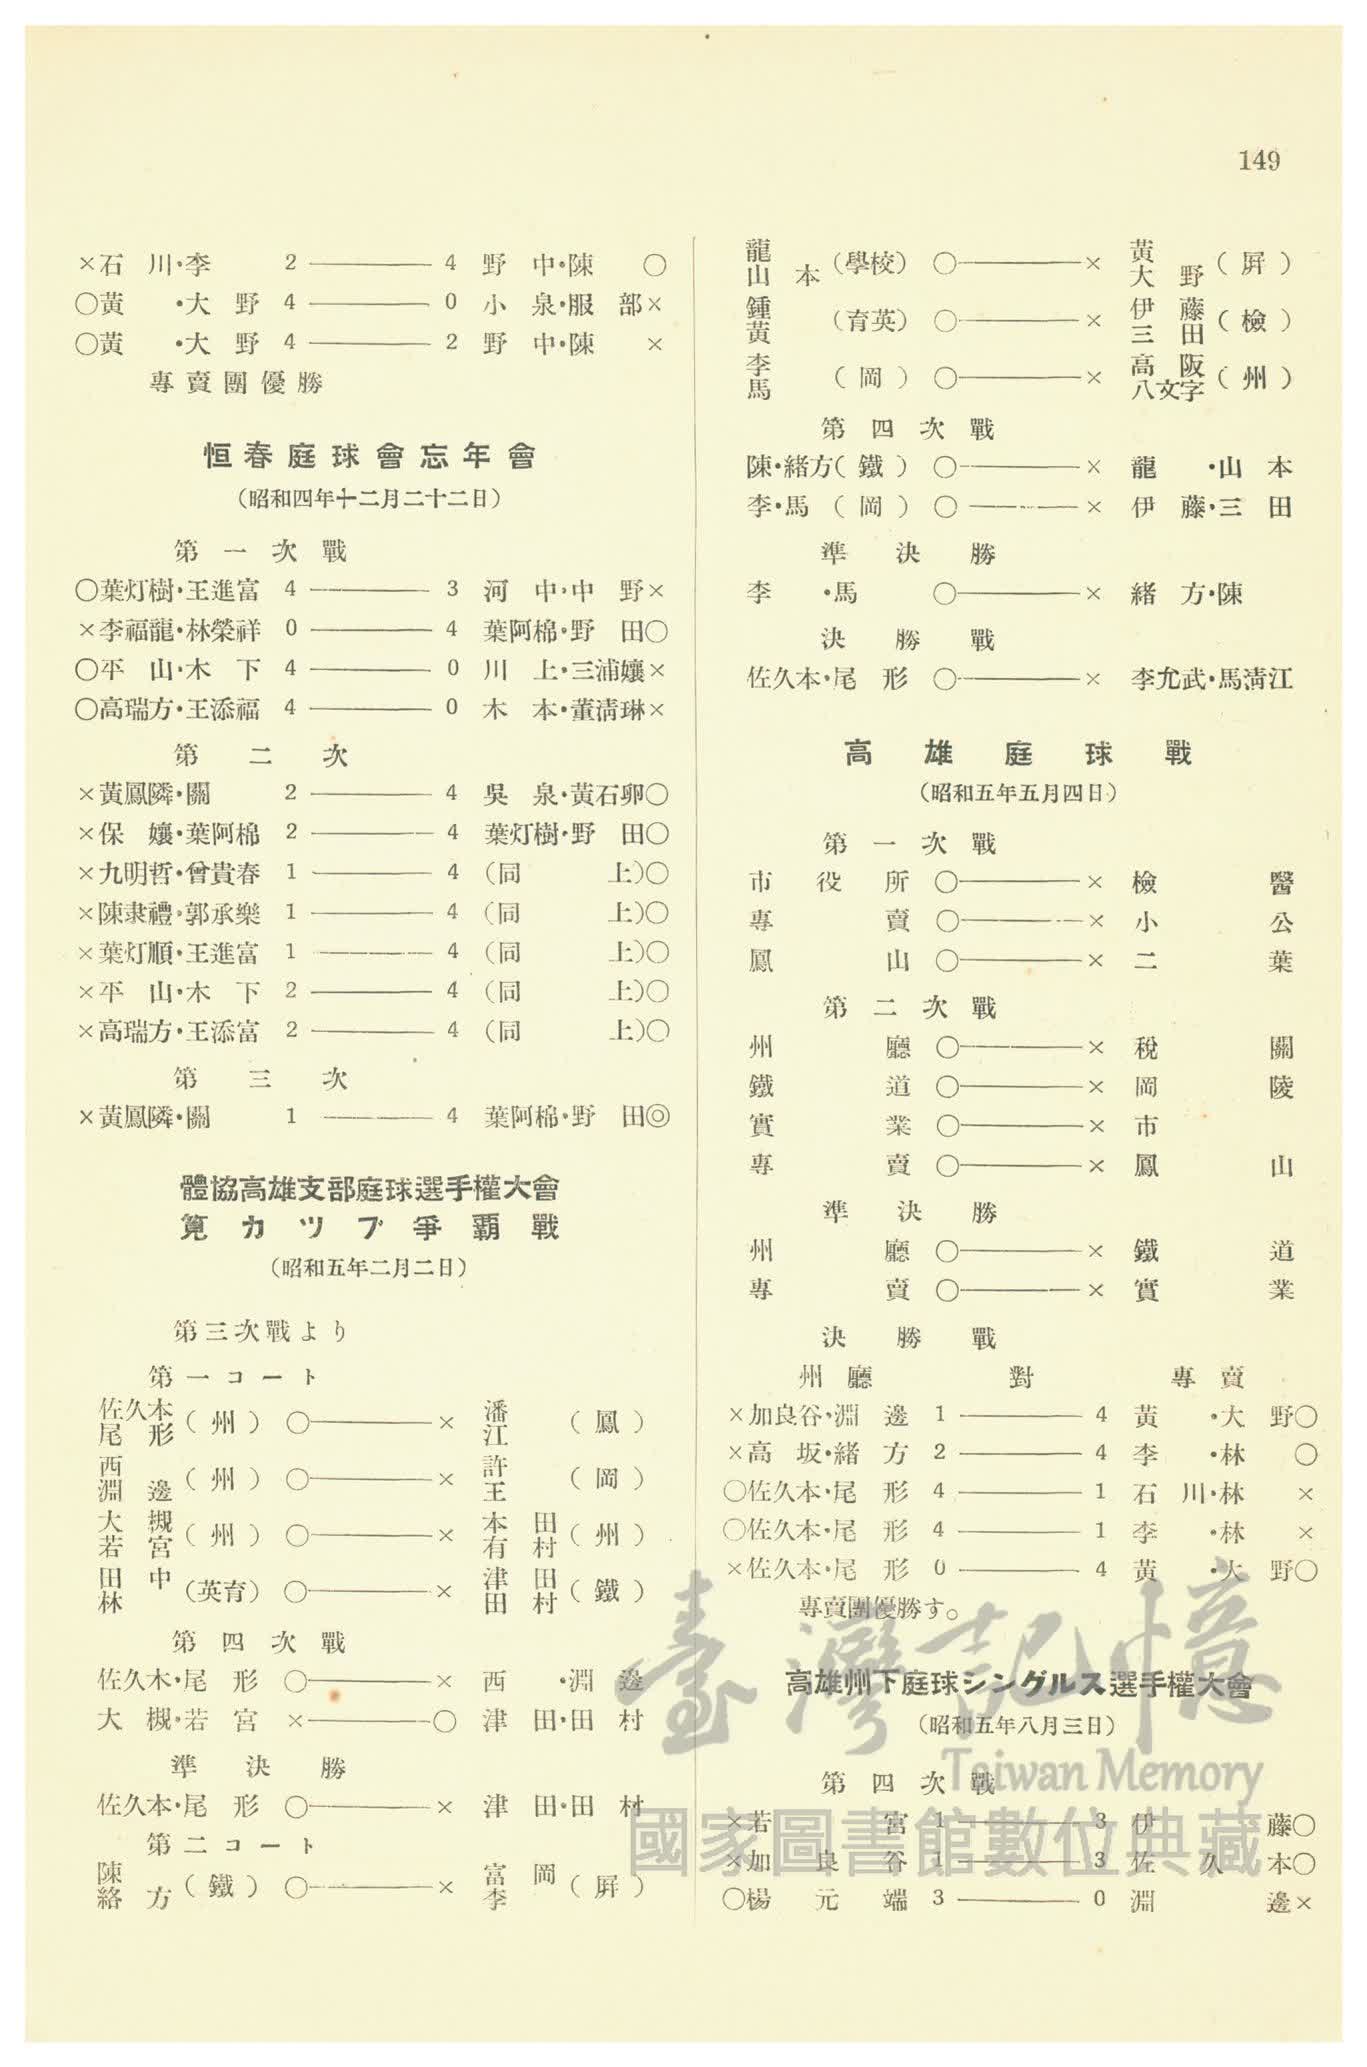 149
×石川・李 2 ——— 4 野中・陳 ○
○黃・大野 4 ——— 0 小泉・服部×
○黃・大野 4 ——— 2 野中・陳 ×
專賣團優勝
恒春庭球會忘年會
(昭和四年十二月二十二日)
第一次戰
○葉灯樹・王進富 4 ——— 3 河中・中野×
×李福龍・林榮祥 0 ——— 4 葉阿棉・野田○
○平山・木下 4 ——— 0 川上・三浦孃×
○高瑞方・王添福 4 ——— 0 木本・董淸琳×
第二次
×黃鳳隣・關 2 ——— 4 吳泉・黃石卯○
×保孃・葉阿棉 2 ——— 4 葉灯樹・野田○
×九明哲・曾貴春 1 ——— 4 (同上)○
×陳隶禮・郭承樂 1 ——— 4 (同上)○
×葉灯順・王進富 1 ——— 4 (同上)○
×平山・木下 2 ——— 4 (同上)○
×高瑞方・王添富 2 ——— 4 (同上)○
第三次
×黃鳳隣・關 1 ——— 4 葉阿棉・野田◎
體協高雄支部庭球選手權大會
筧カツプ爭覇戰
(昭和五年二月二日)
第三次戰より
第一コート
佐久本 尾形 (州) ○———× 潘 江 (鳳)
西 淵邊 (州) ○———× 許 王 (岡)
大槻 若宮 (州) ○———× 本田 有村 (州)
田中 林 (英育) ○———× 津田 田村 (鐵)
第四次戰
佐久木・尾形 ○———× 西・淵邊
大槻・若宮 ×———○ 津田・田村
準決勝
佐久本・尾形 ○———× 津田・田村
第二コート
陳 絡方 (鐵) ○———× 富岡 李 (屛)
龍 山本 (學校) ○———× 黃 大野 (屛)
鍾 黃 (育英) ○———× 伊藤 三田 (檢)
李 馬 (岡) ○———× 高阪 八文字 (州)
第四次戰
陳・緒方(鐵) ○———× 龍・山本
李・馬(岡) ○———× 伊藤・三田
準決勝
李・馬 ○———× 緒方・陳
決勝戰
佐久本・尾形 ○———× 李允武・馬淸江
高雄庭球戰
(昭和五年五月四日)
第一次戰
市役所 ○———× 檢醫
專賣 ○———× 小公
鳳山 ○———× 二葉
第二次戰
州廳 ○———× 稅關
鐵道 ○———× 岡陵
實業 ○———× 市
專賣 ○———× 鳳山
準決勝
州廳 ○———× 鐵道
專賣 ○———× 實業
決勝戰
州廳 對 專賣
×加良谷・淵邊 1 ——— 4 黃・大野○
×高坂・緒方 2 ——— 4 李・林 ○
○佐久本・尾形 4 ——— 1 石川・林 ×
○佐久本・尾形 4 ——— 1 李・林 ×
×佐久本・尾形 0 ——— 4 黃・大野○
專賣團優勝す。
高雄州下庭球シングルス選手權大會
(昭和五年八月三日)
第四次戰
×若宮 1 ——— 3 伊藤○
×加良谷 1 ——— 3 佐久本○
○楊元端 3 ——— 0 淵邊×
臺灣記憶
Taiwan Memory
國家圖書館數位典藏